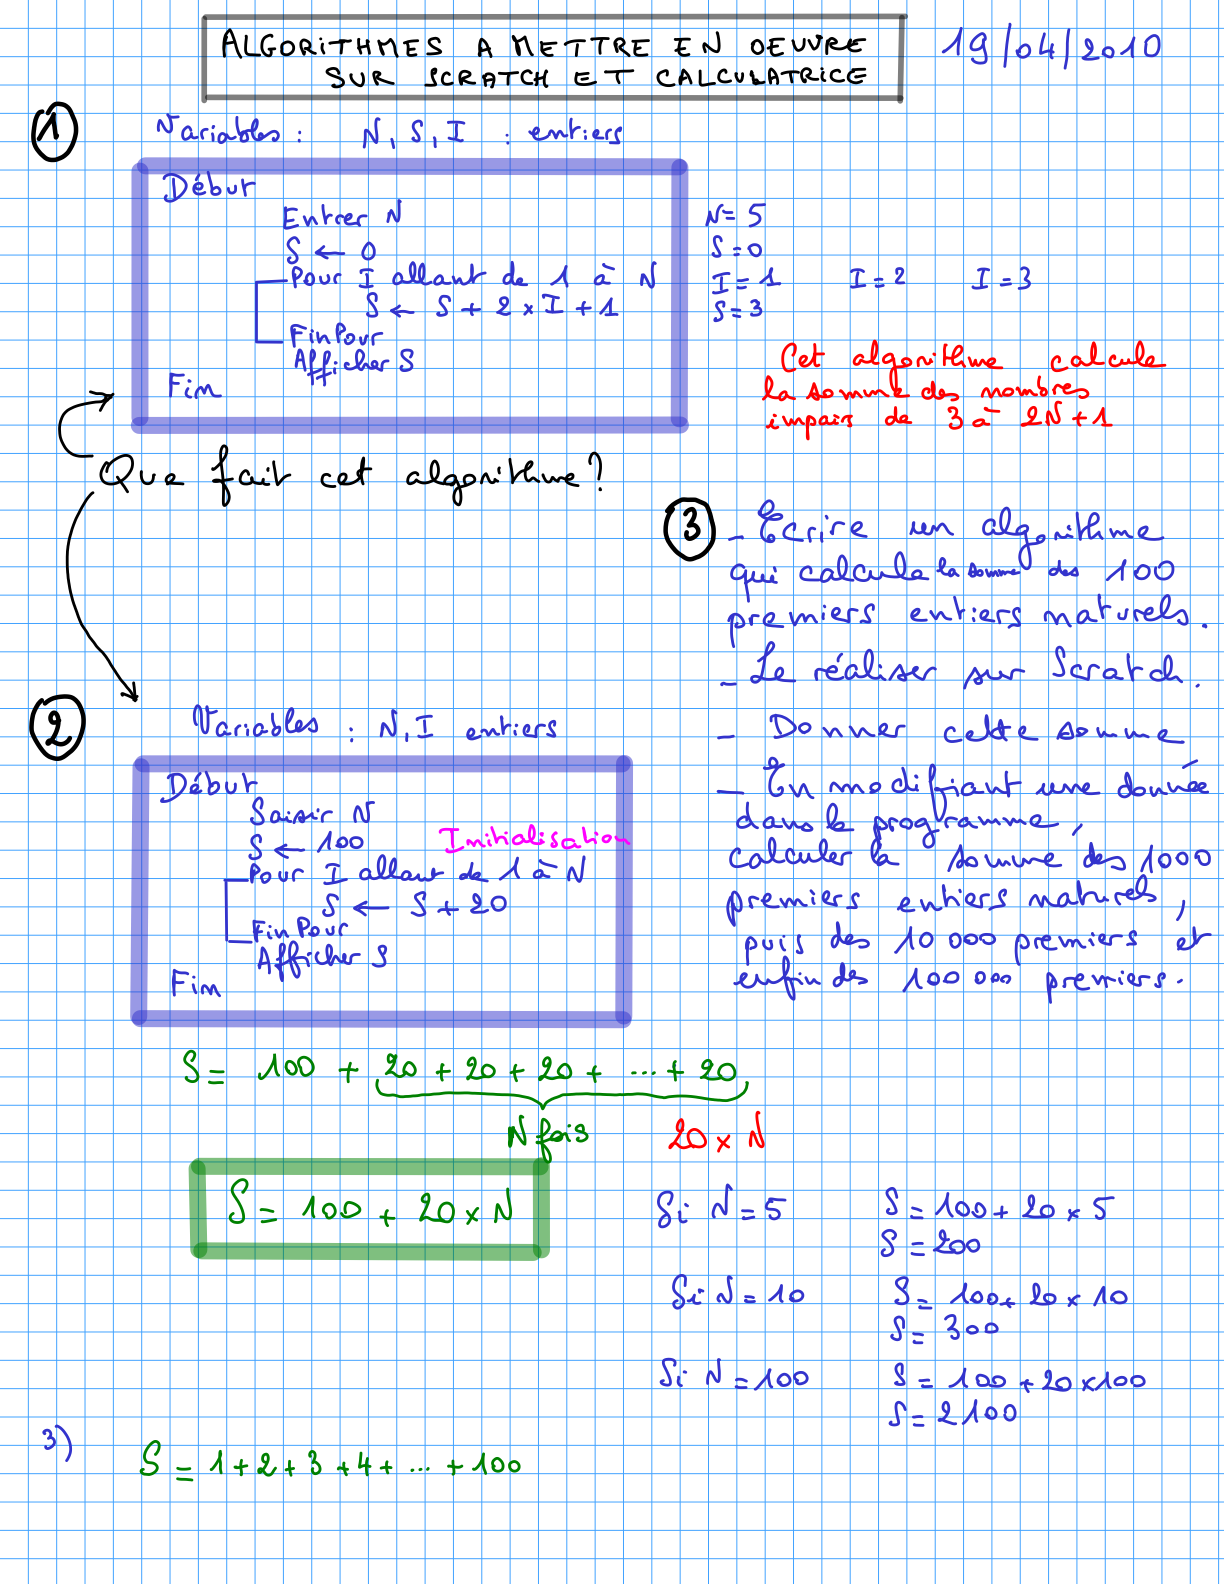 ALGORITHMES A METTRE EN OEUVRE
SUR SCRATCH ET CALCULATRICE
19/04/2010
1
Variables : N, S, I : entiers
Début
Entrer N
S ← 0
Pour I allant de 1 à N
S ← S + 2 × I + 1
FinPour
Afficher S
Fin
N = 5
S = 0
I = 1 I = 2 I = 3
S = 3
Cet algorithme calcule
la somme des nombres
impairs de 3 à 2N+1
Que fait cet algorithme?
2
Variables : N, I entiers
Début
Saisir N
S ← 100 Initialisation
Pour I allant de 1 à N
S ← S + 20
FinPour
Afficher S
Fin
3
- Ecrire un algorithme
qui calcule la somme des 100
premiers entiers naturels.
- Le réaliser sur Scratch.
- Donner cette somme
- En modifiant une donnée
dans le programme,
calculer la somme des 1000
premiers entiers naturels,
puis des 10 000 premiers et
enfin des 100 000 premiers.
S = 100 + 20 + 20 + 20 + ... + 20
N fois 20 × N
S = 100 + 20 × N
Si N = 5 S = 100 + 20 × 5
S = 200
Si N = 10 S = 100 + 20 × 10
S = 300
Si N = 100 S = 100 + 20×100
S = 2100
3) S = 1 + 2 + 3 + 4 + ... + 100